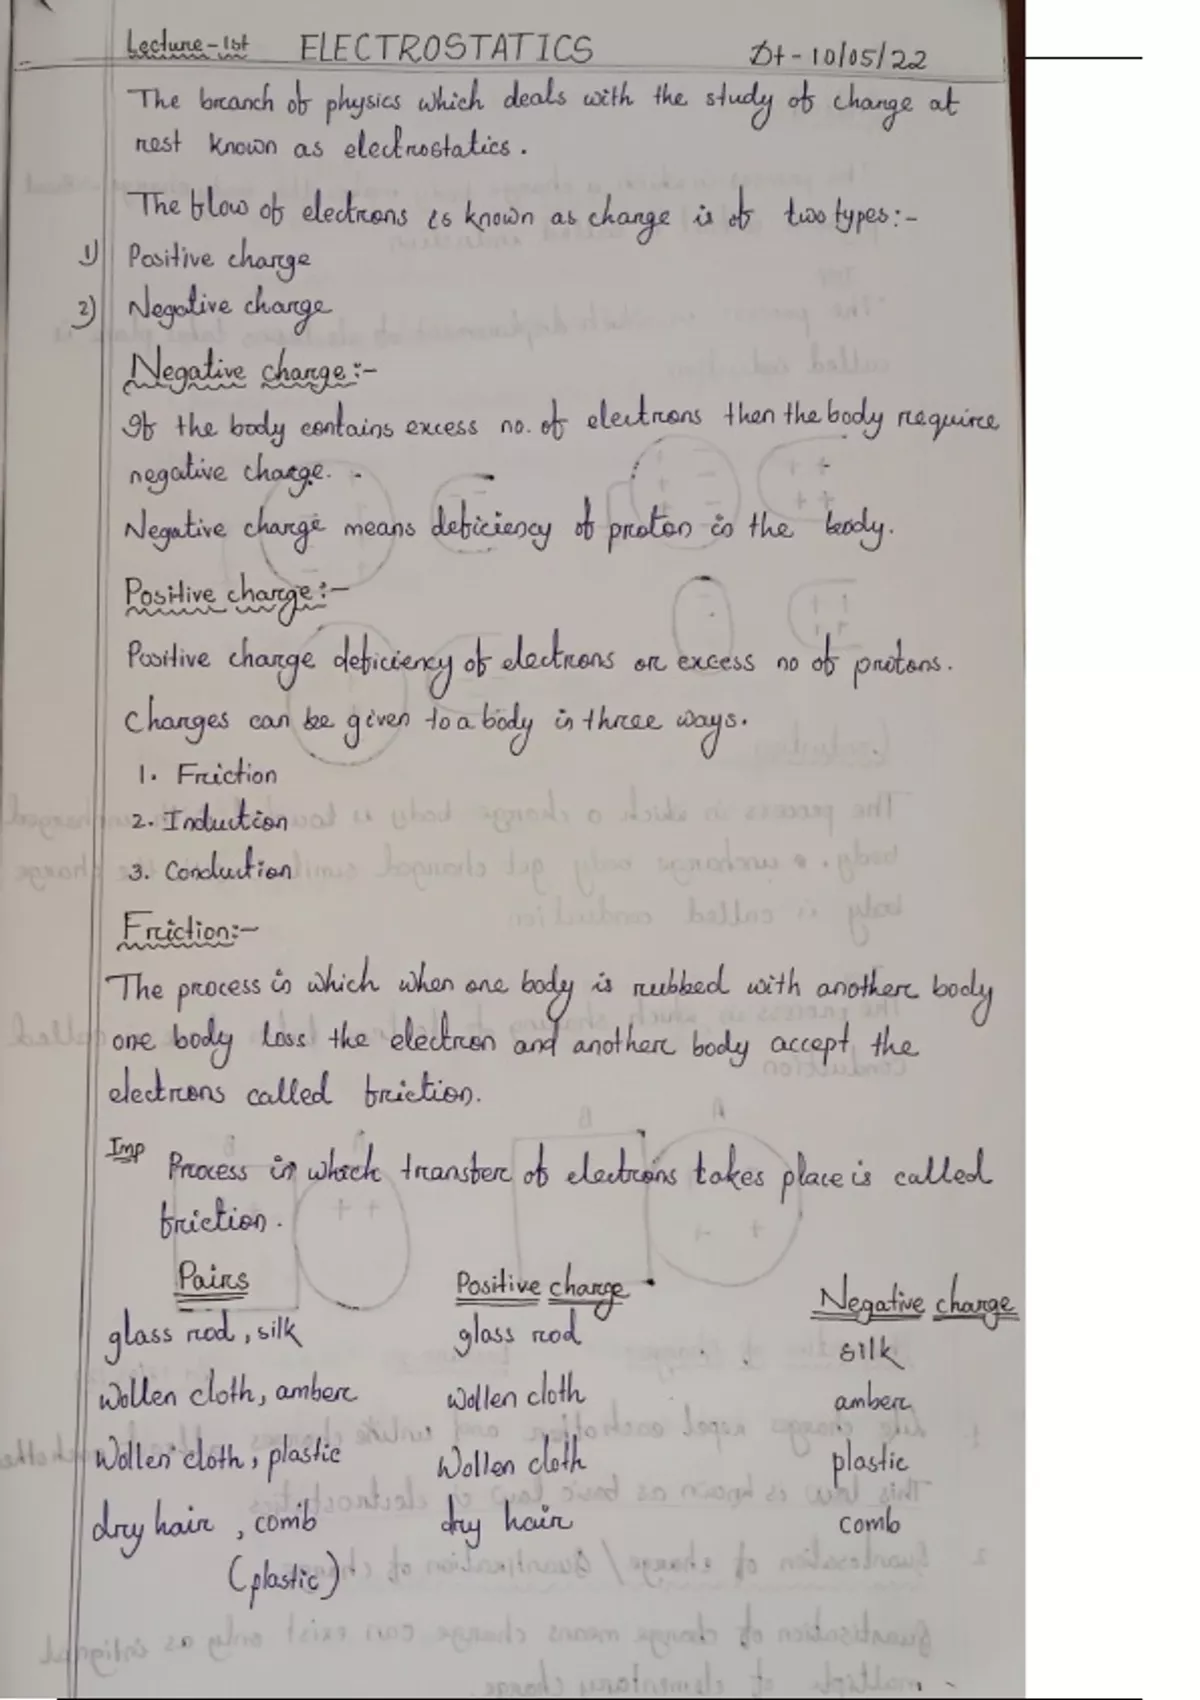 Lecture-1st ELECTROSTATICS Dt-10/05/22
The branch of physics which deals with the study of charge at
rest known as electrostatics.
The flow of electrons is known as charge is of two types:-
1) Positive charge
2) Negative charge
Negative charge:-
If the body contains excess no. of electrons then the body require
negative charge.
Negative charge means deficiency of proton in the body.
Positive charge:-
Positive charge deficiency of electrons or excess no of protons.
Charges can be given to a body in three ways.
1. Friction
2. Induction
3. Conduction
Friction:-
The process in which when one body is rubbed with another body
one body loss the electron and another body accept the
electrons called friction.
Imp Process in which transfer of electrons takes place is called
friction.
Pairs Positive charge Negative charge
glass rod, silk glass rod silk
Wollen cloth, amber wollen cloth amber
Wollen cloth, plastic Wollen cloth plastic
dry hair, comb dry hair comb
(plastic)